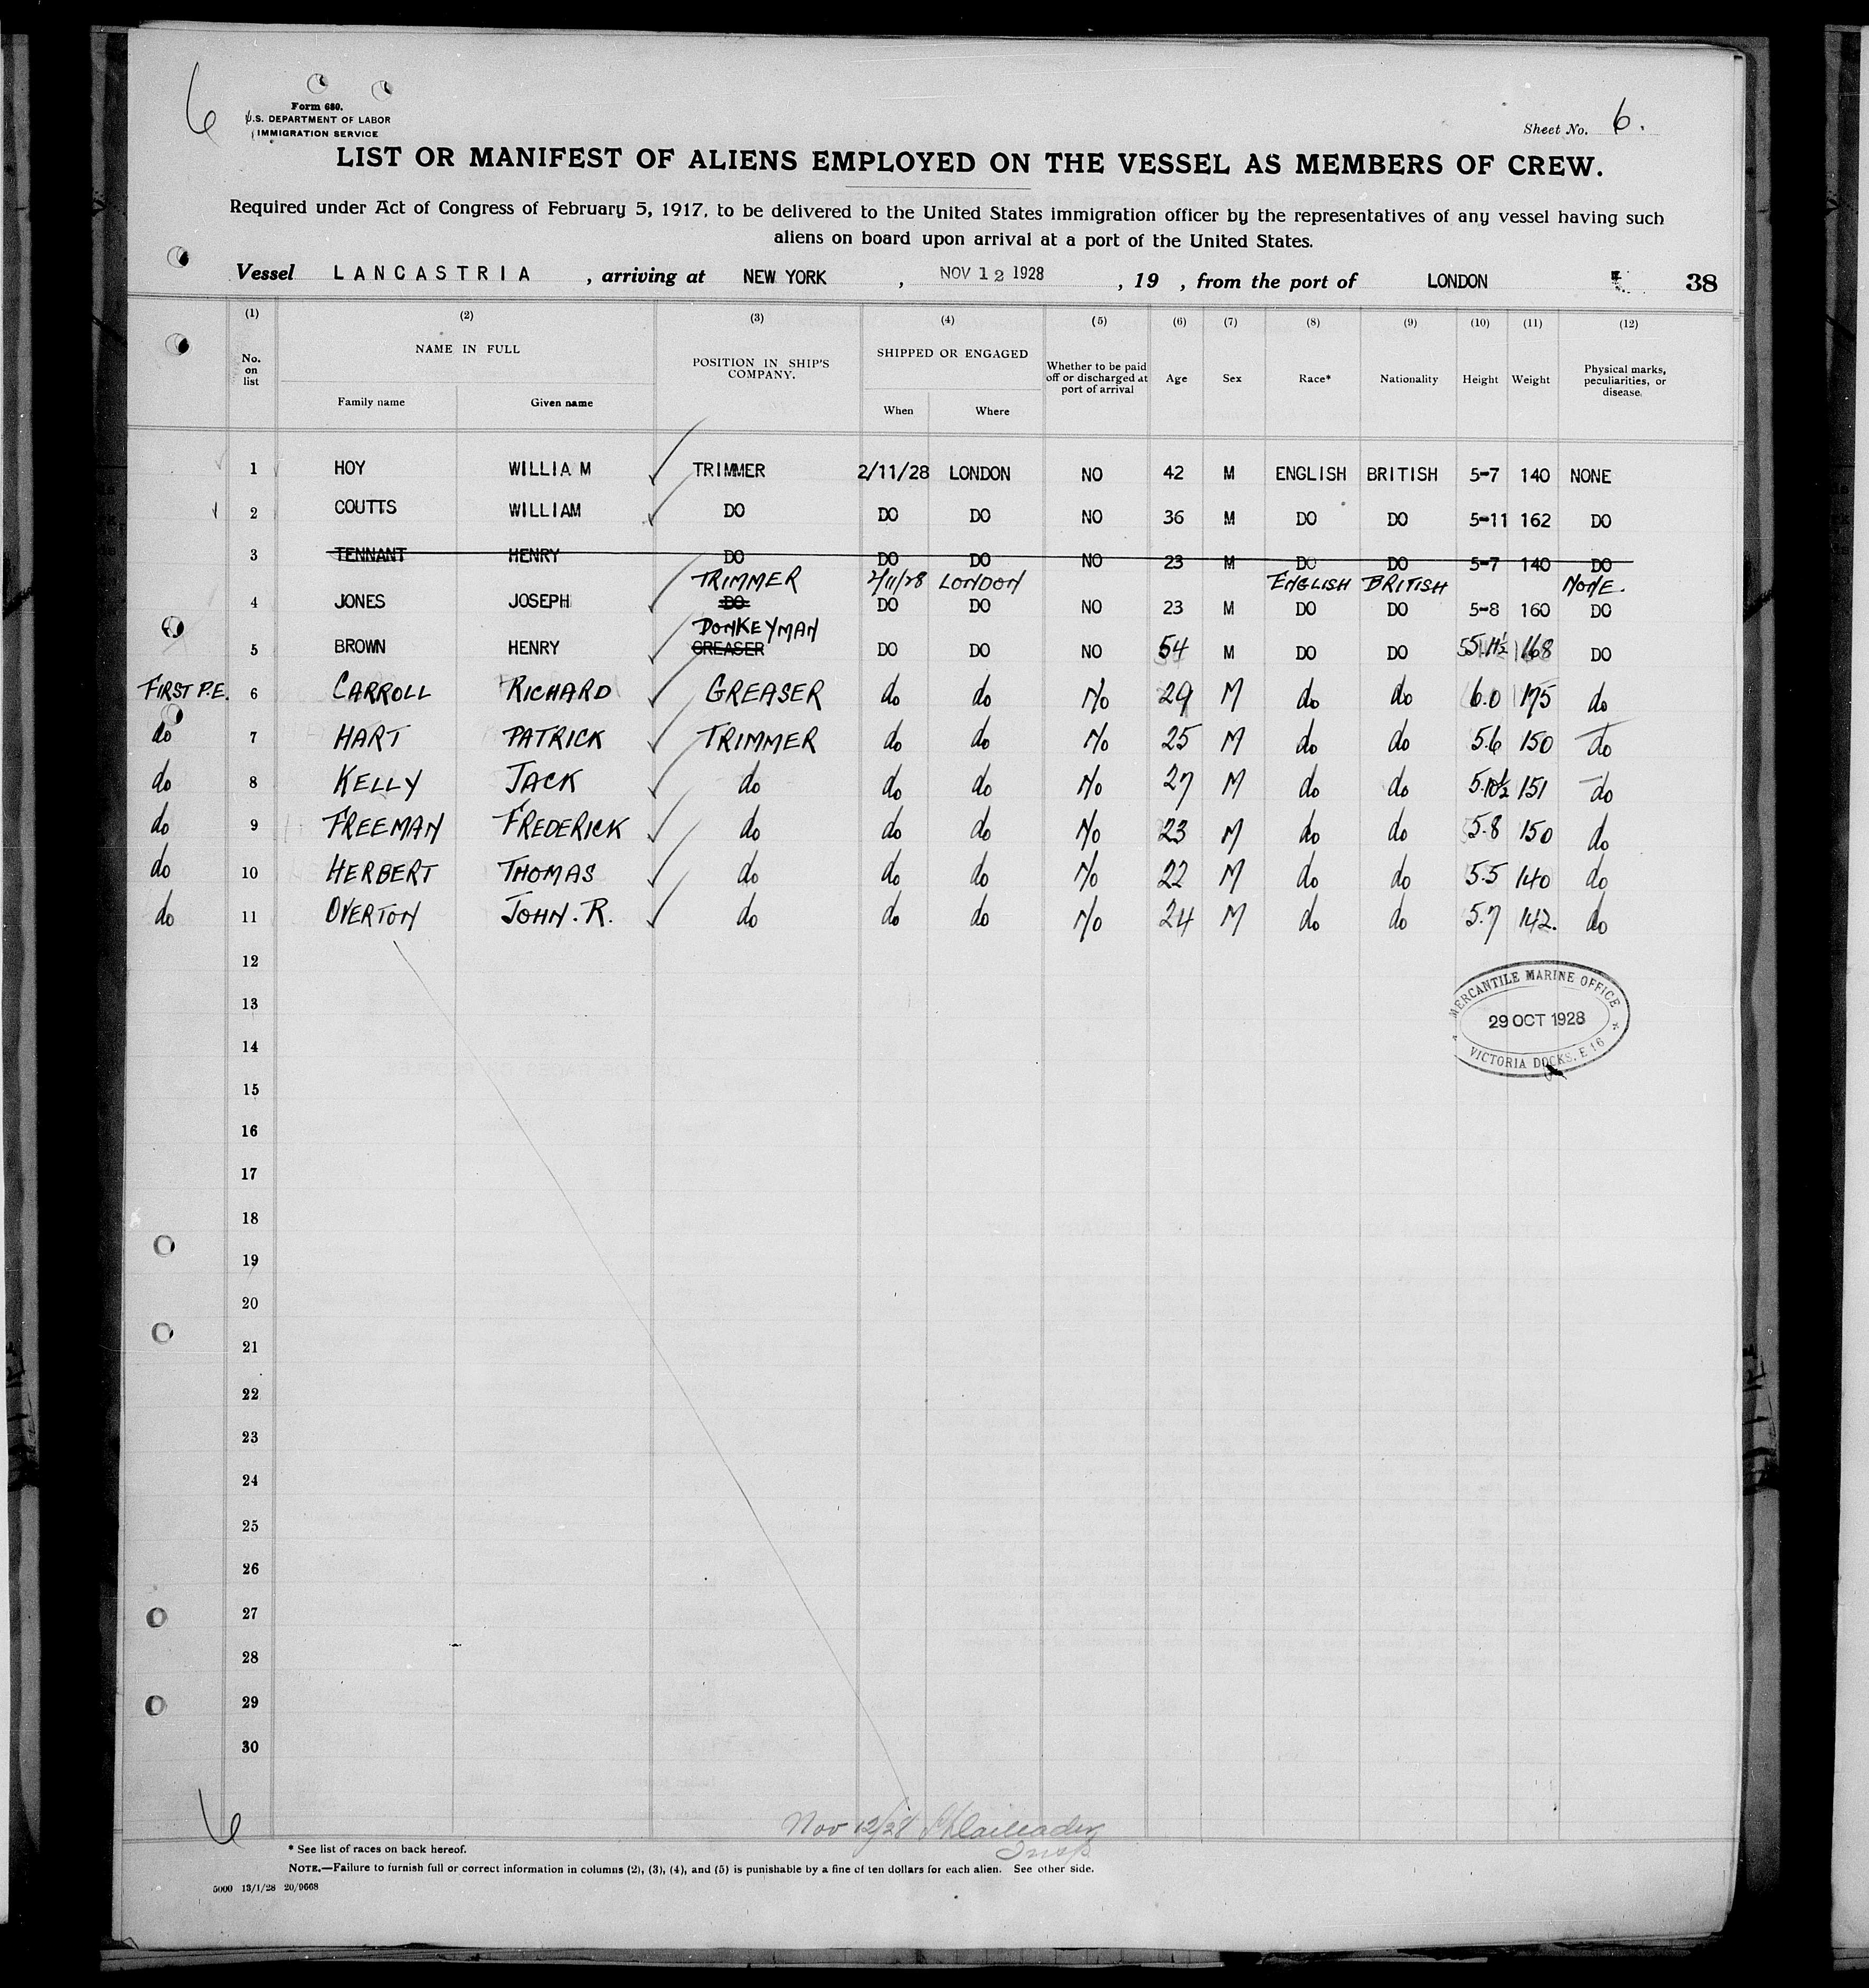 6
Form 680.
U.S. DEPARTMENT OF LABOR
IMMIGRATION SERVICE
Sheet No. 6.
LIST OR MANIFEST OF ALIENS EMPLOYED ON THE VESSEL AS MEMBERS OF CREW.
Required under Act of Congress of February 5, 1917, to be delivered to the United States immigration officer by the representatives of any vessel having such
aliens on board upon arrival at a port of the United States.
Vessel LANCASTRIA , arriving at NEW YORK , NOV 12 1928 , 19 , from the port of LONDON 38
(1) (2) (3) (4) (5) (6) (7) (8) (9) (10) (11) (12)
No. on list NAME IN FULL POSITION IN SHIP'S COMPANY. SHIPPED OR ENGAGED Whether to be paid off or discharged at port of arrival Age Sex Race* Nationality Height Weight Physical marks, peculiarities, or disease.
Family name Given name When Where
1 HOY WILLIAM TRIMMER 2/11/28 LONDON NO 42 M ENGLISH BRITISH 5-7 140 NONE
2 COUTTS WILLIAM DO DO DO NO 36 M DO DO 5-11 162 DO
3 TENNANT HENRY DO DO DO NO 23 M DO DO 5-7 140 DO
TRIMMER 2/11/28 LONDON ENGLISH BRITISH NONE.
4 JONES JOSEPH DO DO DO NO 23 M DO DO 5-8 160 DO
DONKEYMAN
5 BROWN HENRY GREASER DO DO NO 54 M DO DO 5.11½ 168 DO
FIRST P.E. 6 CARROLL RICHARD GREASER do do No 29 M do do 6.0 175 do
do 7 HART PATRICK TRIMMER do do No 25 M do do 5.6 150 do
do 8 KELLY JACK do do do No 27 M do do 5.10½ 151 do
do 9 FREEMAN FREDERICK do do do No 23 M do do 5.8 150 do
do 10 HERBERT THOMAS do do do No 22 M do do 5.5 140 do
do 11 OVERTON JOHN. R. do do do No 24 M do do 5.7 142. do
12
MERCANTILE MARINE OFFICE
13
29 OCT 1928
14
VICTORIA DOCKS. E 16
15
16
17
18
19
20
21
22
23
24
25
26
27
28
29
30
6
Nov 12/28
Insp
* See list of races on back hereof.
NOTE.—Failure to furnish full or correct information in columns (2), (3), (4), and (5) is punishable by a fine of ten dollars for each alien. See other side.
5000 13/1/28 20/9668